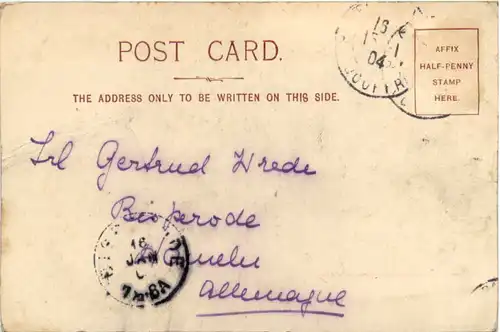 POST CARD.
THE ADDRESS ONLY TO BE WRITTEN ON THIS SIDE.
AFFIX
HALF-PENNY
STAMP
HERE.
16
04
Frl Gertrud Wrede
Bisperode
Hameln
Allemagne
18
JAN